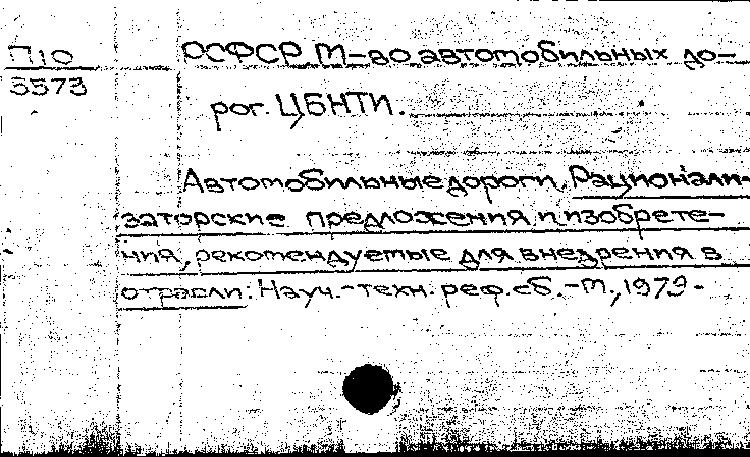 П10
5573
РСФСР М-во автомобильных до-
рог. ЦБНТИ.
Автомобильные дороги, Рационали-
заторские предложения и изобрете-
ния, рекомендуемые для внедрения в
отрасли: Науч.-техн. реф. сб. -М., 1979-